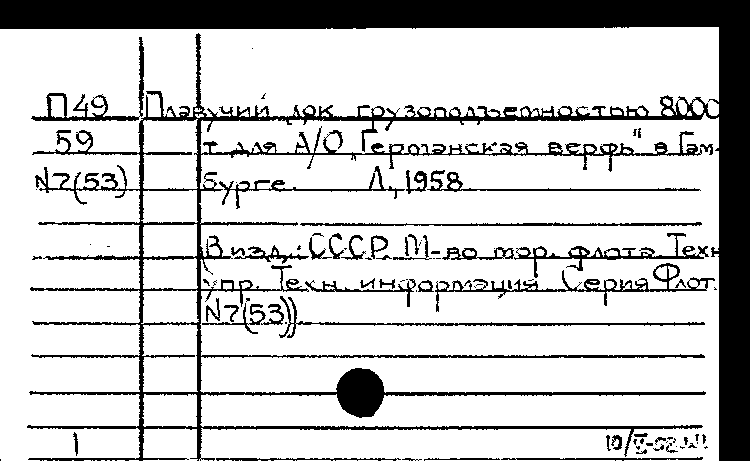 П49 Плавучий док грузоподъемностью 8000
59 т для А/О „Германская верфь" в Гам-
N7(53) бурге. Л., 1958
(В изд.: СССР. М-во мор. флота. Техн
упр. Техн. информация. Серия Флот.
N7(53))
1